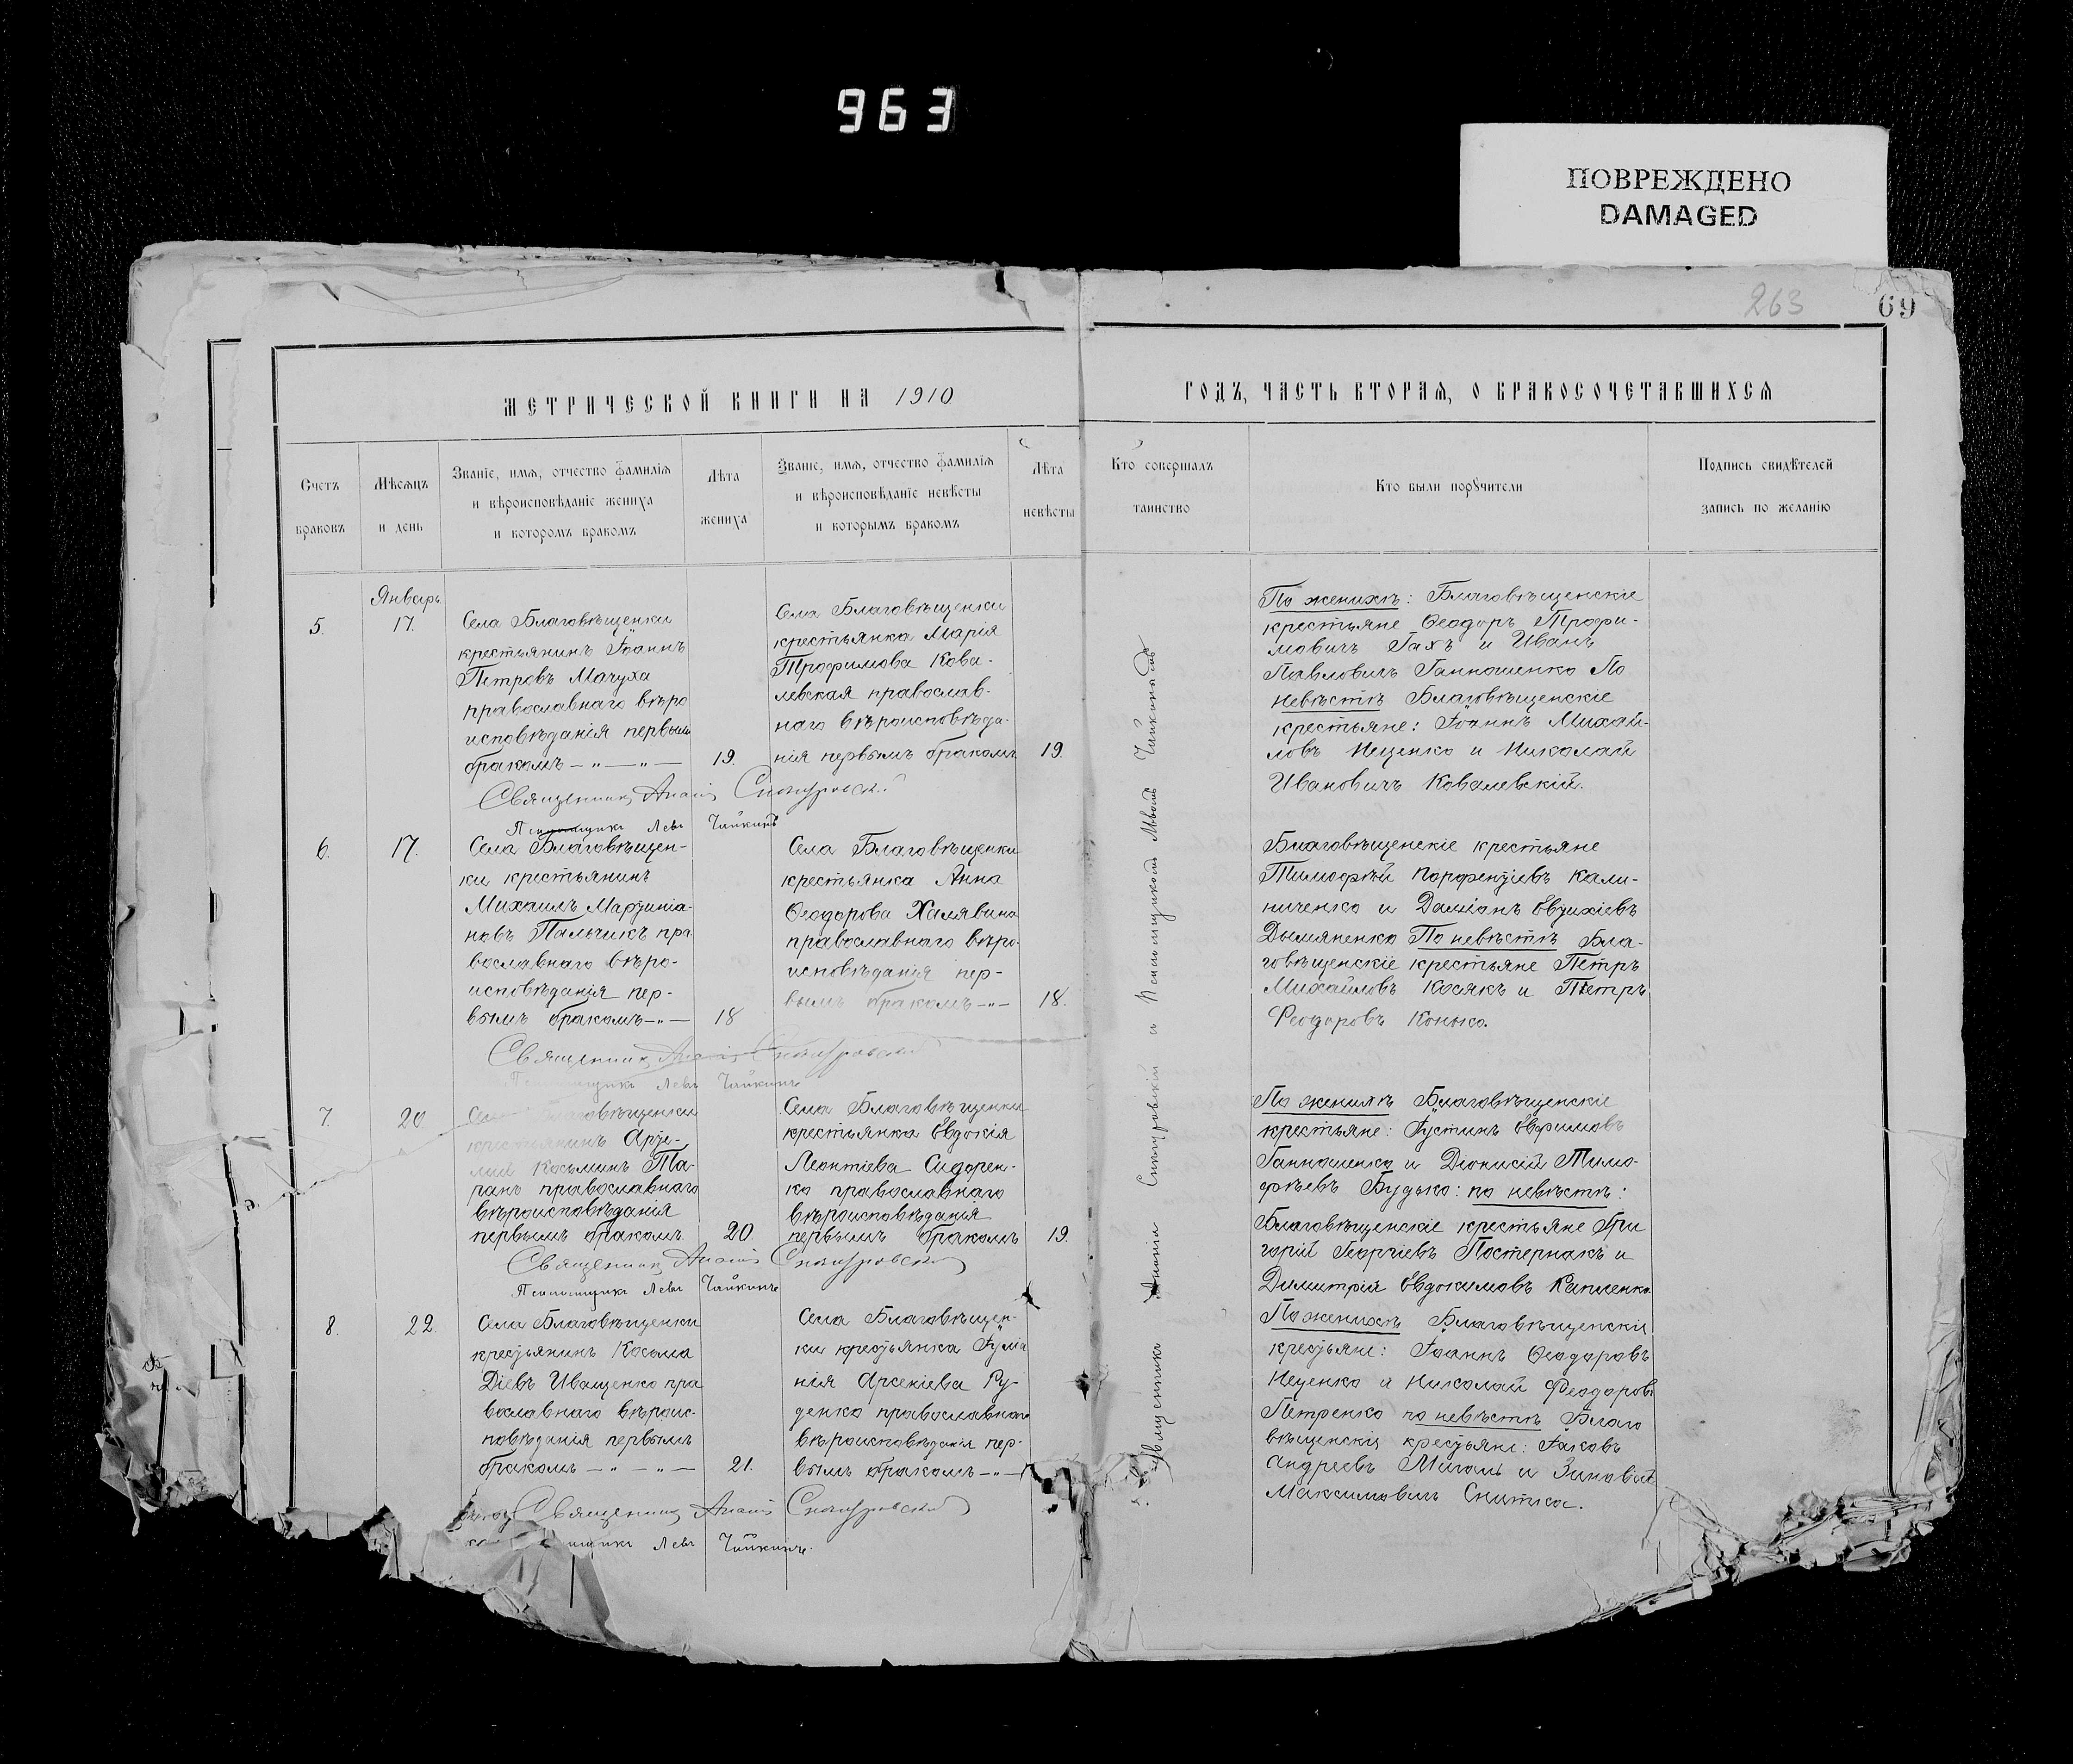 963
ПОВРЕЖДЕНО
DAMAGED
263
69
МЕТРИЧЕСКОЙ КНИГИ НА 1910
ГОДЪ, ЧАСТЬ ВТОРАЯ, О БРАКОСОЧЕТАВШИХСЯ
Счетъ
браковъ
Мѣсяцъ
и день
Званіе, имя, отчество фамилія
и вѣроисповѣданіе жениха
и которомъ бракомъ
Лѣта
жениха
Званіе, имя, отчество фамилія
и вѣроисповѣданіе невѣсты
и которымъ бракомъ
Лѣта
невѣсты
Кто совершалъ
таинство
Кто были поручители
Подпись свидѣтелей
запись по желанію
5.
Январь
17.
Села Благовѣщенки
крестьянинъ Іоаннъ
Петровъ Мачуха
православнаго вѣро
исповѣданія первым
бракомъ — " — " —
19.
Села Благовѣщенки
крестьянка Марія
Трофимова Кова-
левская православ-
наго вѣроисповѣда-
нія первымъ бракомъ
19.
По женихѣ: Благовѣщенскіе
крестьяне Ѳеодоръ Трофи-
мовичъ Гахъ и Иванъ
Павловичъ Ганношенко По
невѣстѣ Благовѣщенскіе
крестьяне: Іоаннъ Михай-
ловъ Неценко и Николай
Ивановичъ Ковалевскій.
Священникъ Ананій
Псаломщикъ Левъ Чайкинъ
6.
17.
Села Благовѣщен-
ки крестьянинъ
Михаилъ Мартиніа-
новъ Пальчикъ пра
вославнаго вѣро-
исповѣданія пер-
вымъ бракомъ —"—
18
Села Благовѣщенки
крестьянка Анна
Ѳеодорова Халявина
православнаго вѣро-
исповѣданія пер-
вымъ бракомъ —"—
18.
Благовѣщенскіе крестьяне
Тимоѳей Парфентіевъ Кали-
ниченко и Даміанъ Евтихіевъ
Дымяненко По невѣстѣ Бла-
говѣщенскіе крестьяне Петръ
Михайловъ Косякъ и Петръ
Феодоровъ Конько.
Священникъ Ананій
Псаломщикъ Левъ Чайкинъ
7.
20
Села Благовѣщенки
крестьянинъ Арте-
мій Косьминъ Та-
ранъ православнаго
вѣроисповѣданія
первымъ бракомъ
20.
Села Благовѣщенки
крестьянка Евдокія
Леонтіева Сидорен-
ко православнаго
вѣроисповѣданія
первымъ бракомъ
19.
По женихѣ Благовѣщенскіе
крестьяне: Іустинъ Евфимовъ
Ганношенко и Діонисій Тимо-
фѣевъ Будько: по невѣстѣ:
Благовѣщенскіе крестьяне Гри
горій Георгіевъ Пастернакъ и
Димитрій Евдокимовъ Капленко
Священникъ Ананій
Псаломщикъ Левъ Чайкинъ
8.
22.
Села Благовѣщенки
крестьянинъ Косьма
Діевъ Иващенко пра
вославнаго вѣроис-
повѣданія первымъ
бракомъ — " — " —
21.
Села Благовѣщен-
ки крестьянка Іуліа
нія Арсеніева Ру-
денко православнаго
вѣроисповѣданія пер-
вымъ бракомъ —"—
По женихѣ Благовѣщенскіе
крестьяне: Іоаннъ Ѳеодоровъ
Неценко и Николай Феодоровъ
Петренко по невѣстѣ Благо
вѣщенскія крестьяне: Іаковъ
Андреевъ Мигаль и Зиновій
Максимовичъ Снитко.
Священникъ Ананій
Левъ Чайкинъ.
Священникъ Ананій и Псаломщикомъ Львомъ Чайкинымъ